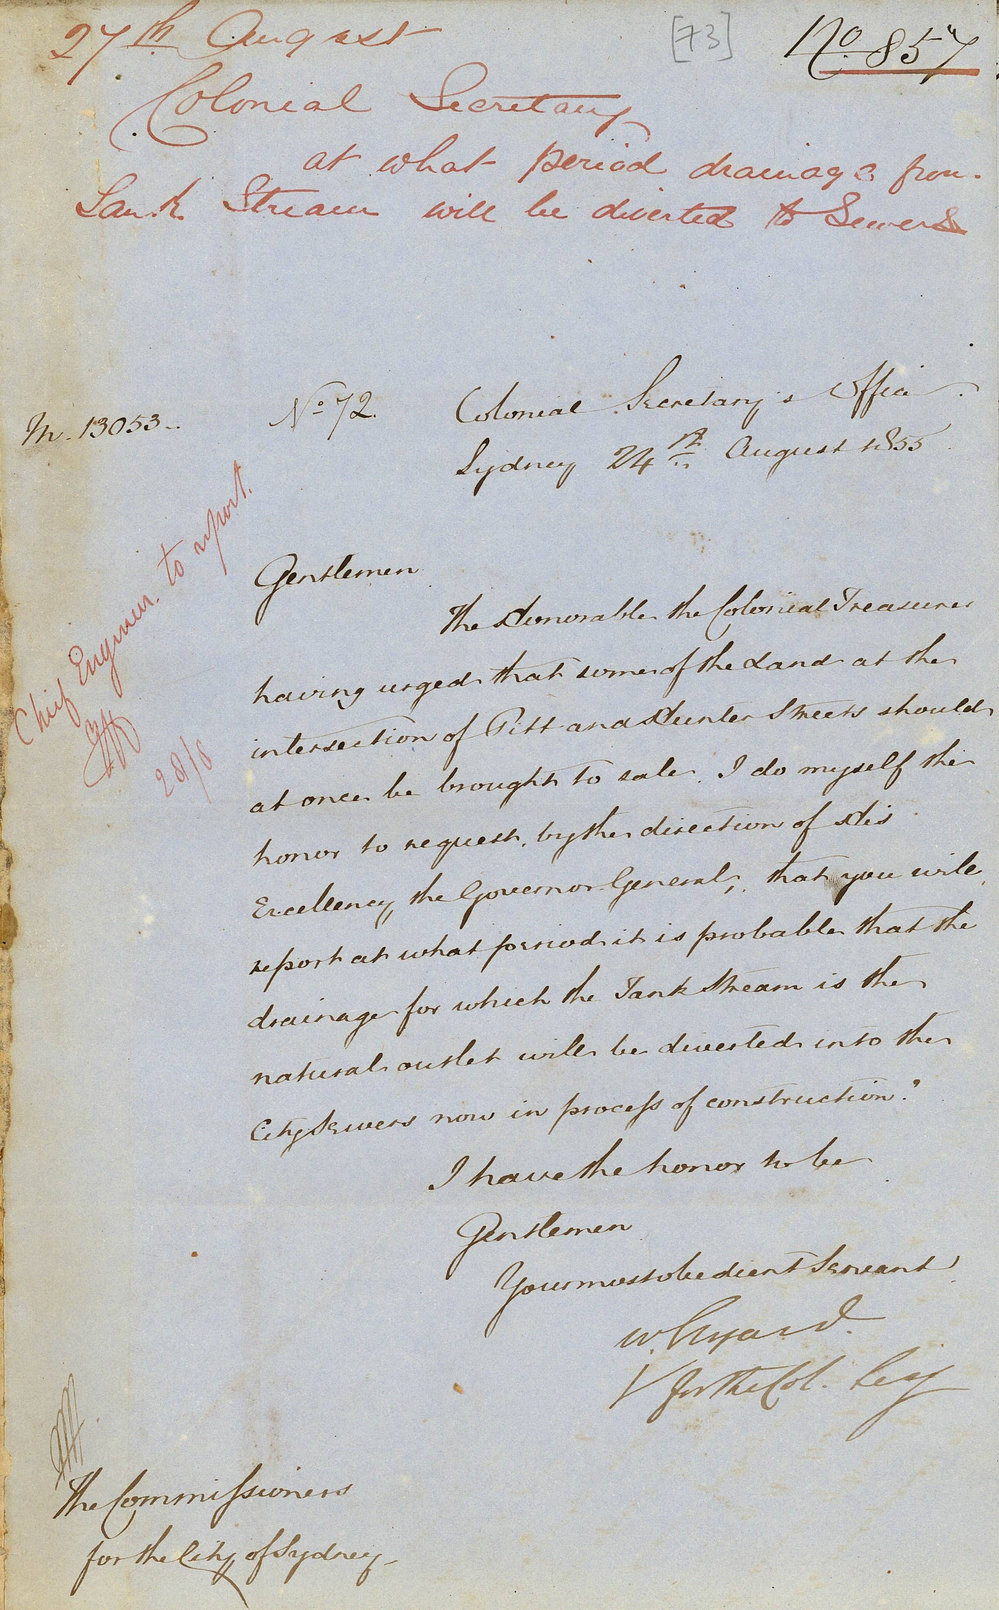 27th August
[73]
No. 857
Colonial Secretary
at what period drainage from
Tank Stream will be diverted to Sewers
M. 13053
No. 72.
Colonial Secretary's Office
Sydney 24th August 1855
Chief Engineer to report.
28/8
Gentlemen
The Honorable the Colonial Treasurer
having urged that some of the Land at the
intersection of Pitt and Hunter Streets should
at once be brought to sale. I do myself the
honor to request, by the direction of His
Excellency, the Governor General, that you will
report at what period it is probable that the
drainage for which the Tank Stream is the
natural outlet will be diverted into the
City Sewers now in process of construction.
I have the honor to be
Gentlemen
Your most obedient Servant
W. Elyard
for the Col. Secy
The Commissioners
for the City of Sydney